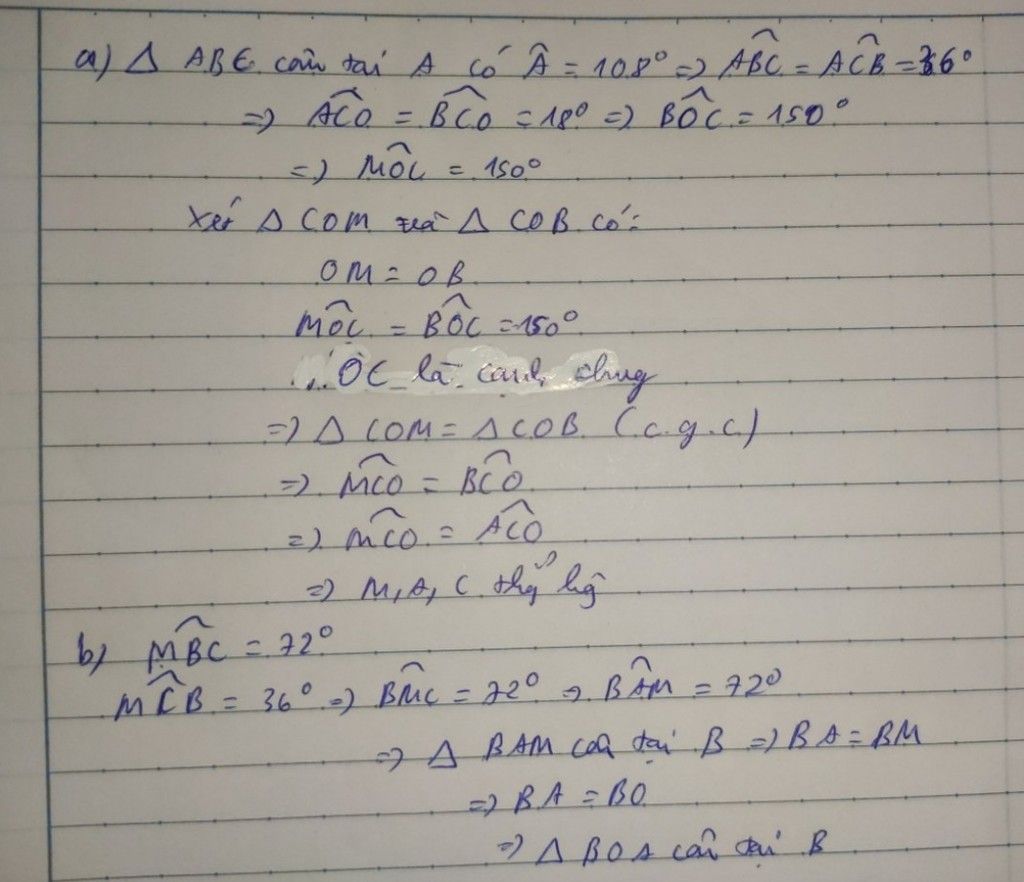 a) Δ ABC cân tại A có Â = 108° => ABĈ = AĈB = 36°
=> AĈO = BĈO = 18° => BÔC = 150°
=> MÔC = 150°
Xét Δ COM và Δ COB có:
OM = OB
MÔC = BÔC = 150°
OC là cạnh chung
=> Δ COM = Δ COB (c.g.c)
=> MĈO = BĈO
=> MĈO = AĈO
=> M, A, C thẳng hàng
b) MB̂C = 72°
MĈB = 36° => BM̂C = 72° => BÂM = 72°
=> Δ BAM cân tại B => BA = BM
=> BA = BO
=> Δ BOA cân tại B